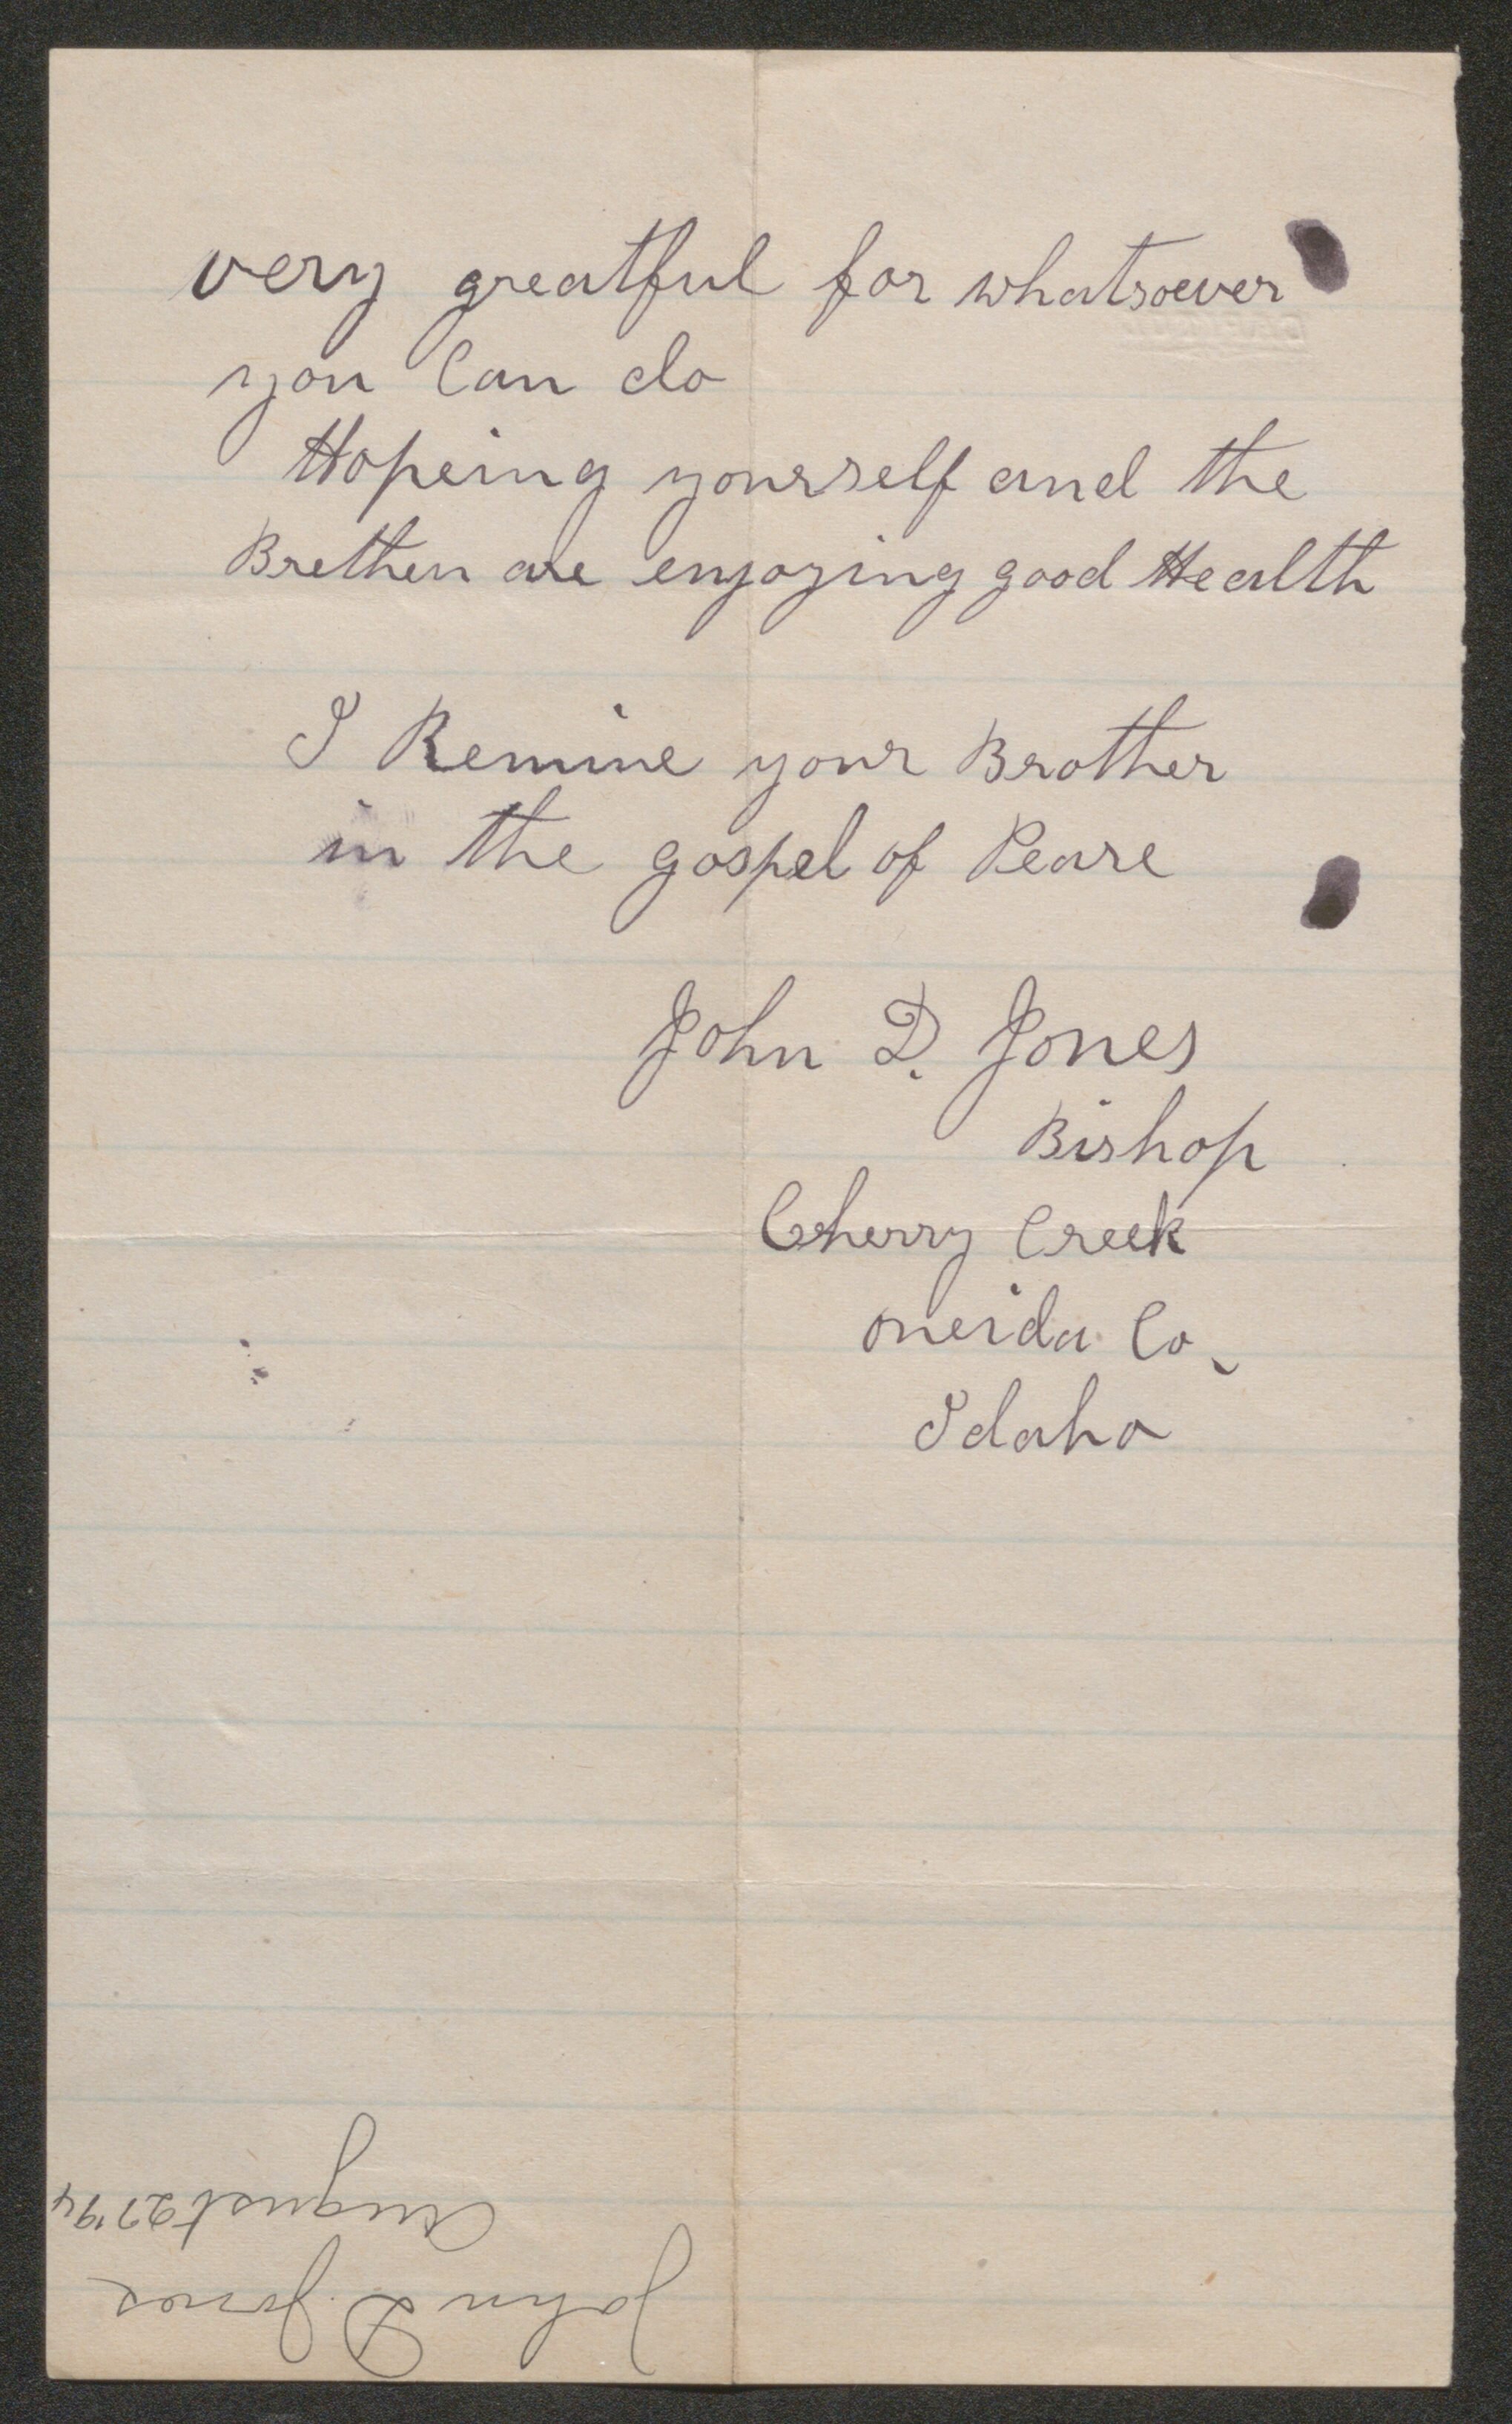 very greatful for whatsoever
you Can do
Hopeing yourself and the
Brethen are enjoying good Health
I Remine your Brother
in the gospel of Peare
John D. Jones
Bishop
Cherry Creek
oneida Co.
Idaho
John D Jones
August 27 '94